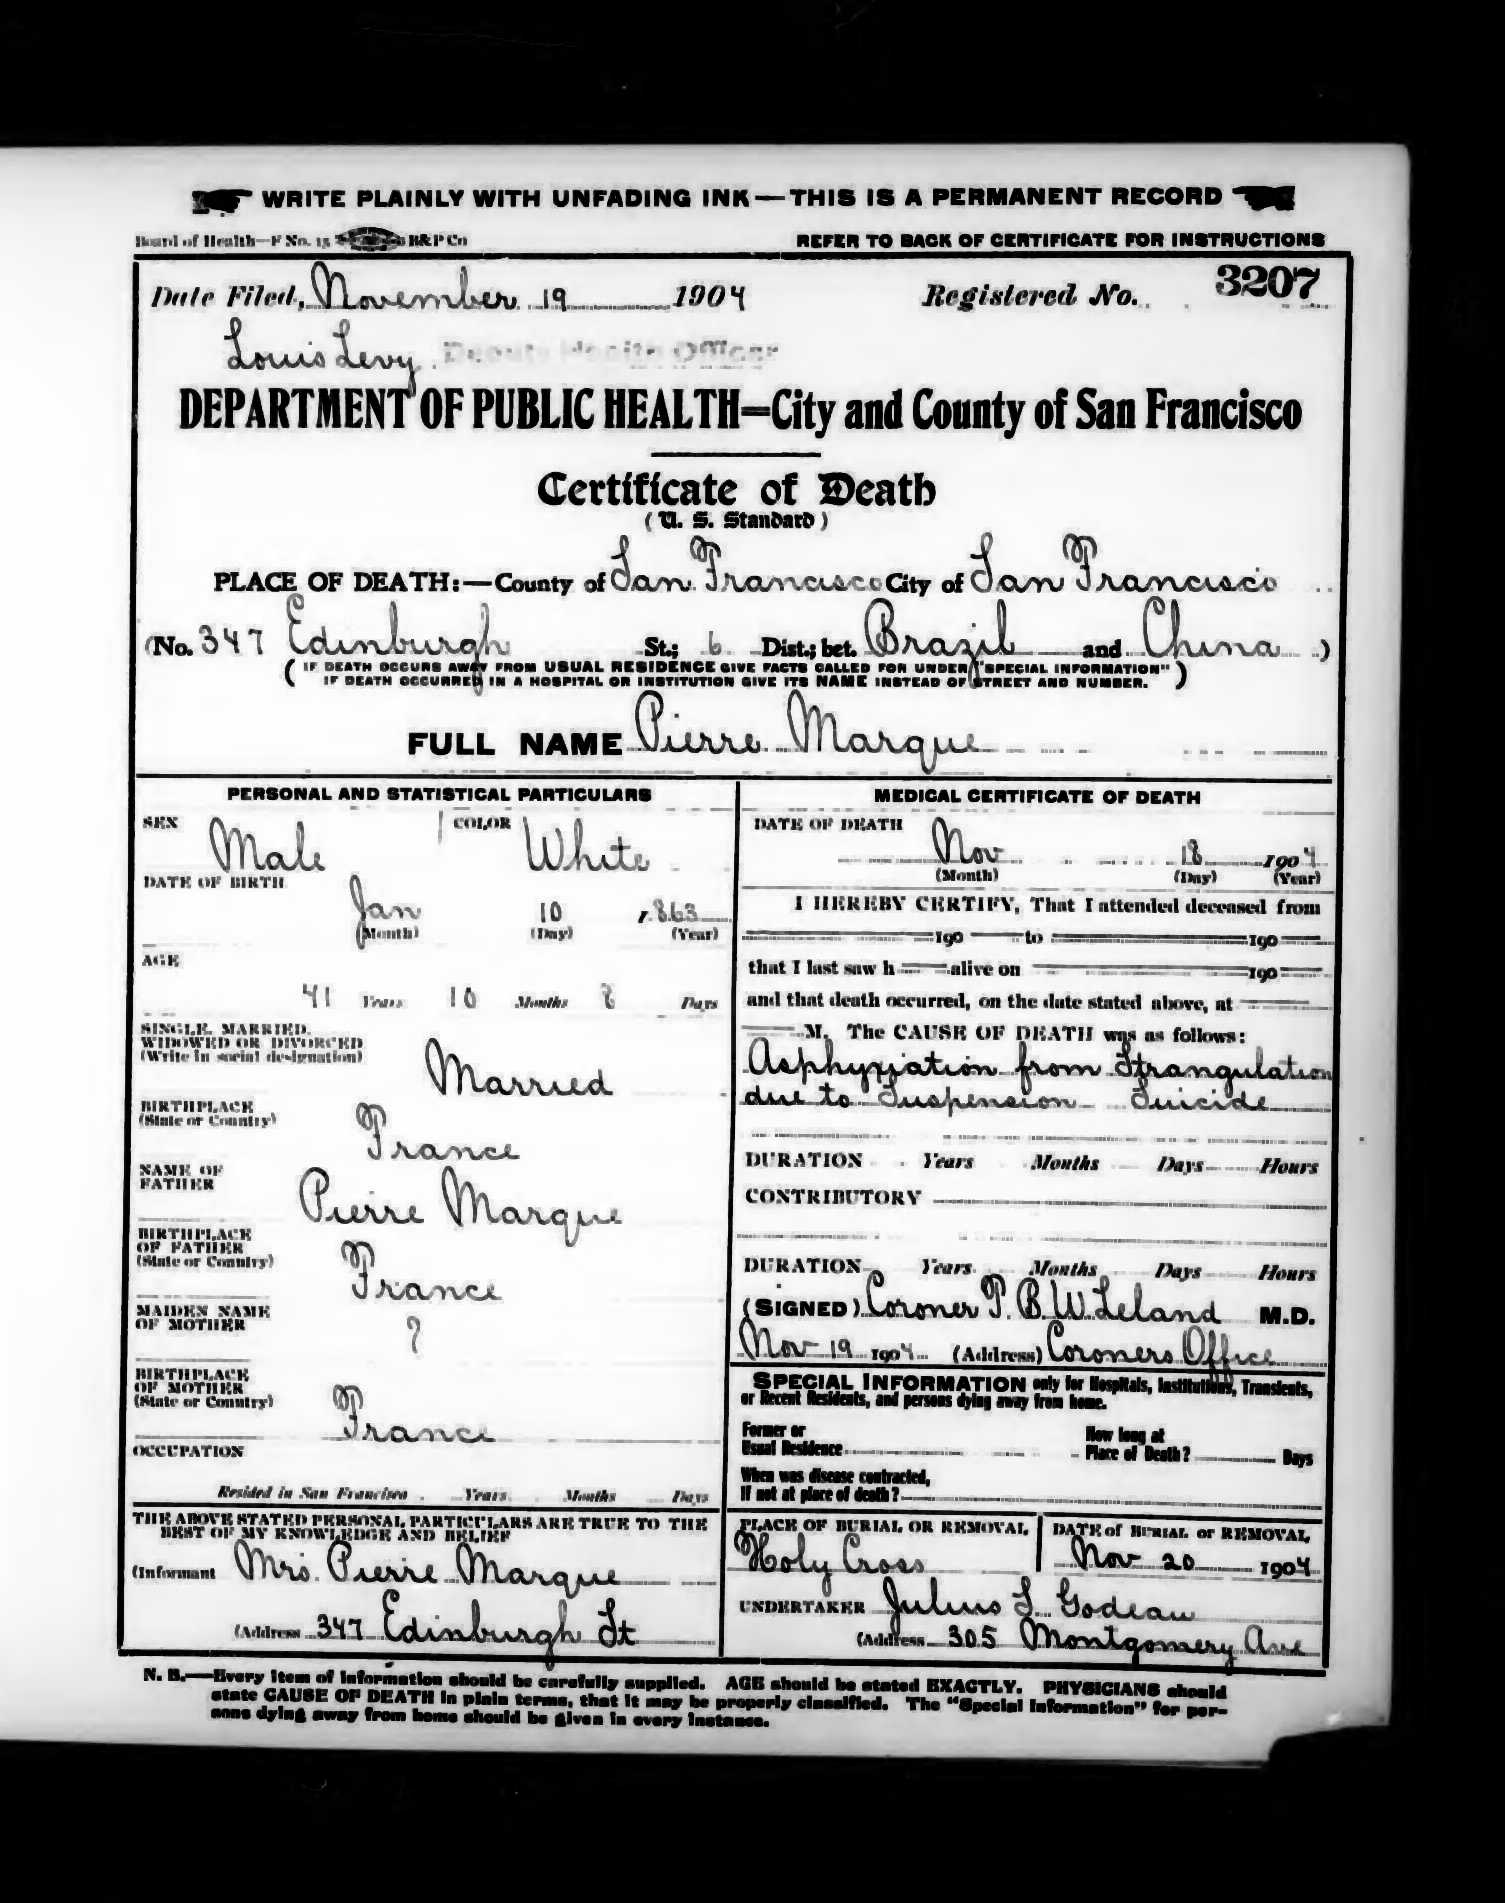 WRITE PLAINLY WITH UNFADING INK—THIS IS A PERMANENT RECORD
Board of Health—F No. 15 B&P Co
REFER TO BACK OF CERTIFICATE FOR INSTRUCTIONS
Date Filed, November 19 1904 Registered No. 3207
Louis Levy Deputy Health Officer
DEPARTMENT OF PUBLIC HEALTH=City and County of San Francisco
Certificate of Death
(U. S. Standard)
PLACE OF DEATH:—County of San Francisco City of San Francisco
(No. 347 Edinburgh St.; 6 Dist.; bet. Brazil and China )
( IF DEATH OCCURS AWAY FROM USUAL RESIDENCE GIVE FACTS CALLED FOR UNDER "SPECIAL INFORMATION" )
IF DEATH OCCURRED IN A HOSPITAL OR INSTITUTION GIVE ITS NAME INSTEAD OF STREET AND NUMBER.
FULL NAME Pierre Marque
PERSONAL AND STATISTICAL PARTICULARS
SEX Male COLOR White
DATE OF BIRTH
Jan 10 1863
(Month) (Day) (Year)
AGE
41 Years 10 Months 8 Days
SINGLE, MARRIED,
WIDOWED OR DIVORCED
(Write in social designation)
Married
BIRTHPLACE
(State or Country)
France
NAME OF
FATHER
Pierre Marque
BIRTHPLACE
OF FATHER
(State or Country)
France
MAIDEN NAME
OF MOTHER
?
BIRTHPLACE
OF MOTHER
(State or Country)
France
OCCUPATION
Resided in San Francisco Years Months Days
THE ABOVE STATED PERSONAL PARTICULARS ARE TRUE TO THE
BEST OF MY KNOWLEDGE AND BELIEF
(Informant Mrs. Pierre Marque
(Address 347 Edinburgh St
MEDICAL CERTIFICATE OF DEATH
DATE OF DEATH
Nov 18 1904
(Month) (Day) (Year)
I HEREBY CERTIFY, That I attended deceased from
190 to 190
that I last saw h alive on 190
and that death occurred, on the date stated above, at
M. The CAUSE OF DEATH was as follows:
Asphyxiation from Strangulation
due to Suspension Suicide
DURATION Years Months Days Hours
CONTRIBUTORY
DURATION Years Months Days Hours
(SIGNED) Coroner T. B. W. Leland M.D.
Nov 19 1904 (Address) Coroners Office
SPECIAL INFORMATION only for Hospitals, Institutions, Transients,
or Recent Residents, and persons dying away from home.
Former or
Usual Residence
How long at
Place of Death? Days
When was disease contracted,
If not at place of death?
PLACE OF BURIAL OR REMOVAL
Holy Cross
DATE of BURIAL or REMOVAL
Nov 20 1904
UNDERTAKER Julius S. Godeau
(Address 305 Montgomery Ave
N. B.—Every item of information should be carefully supplied. AGE should be stated EXACTLY. PHYSICIANS should
state CAUSE OF DEATH in plain terms, that it may be properly classified. The "Special Information" for per-
sons dying away from home should be given in every instance.